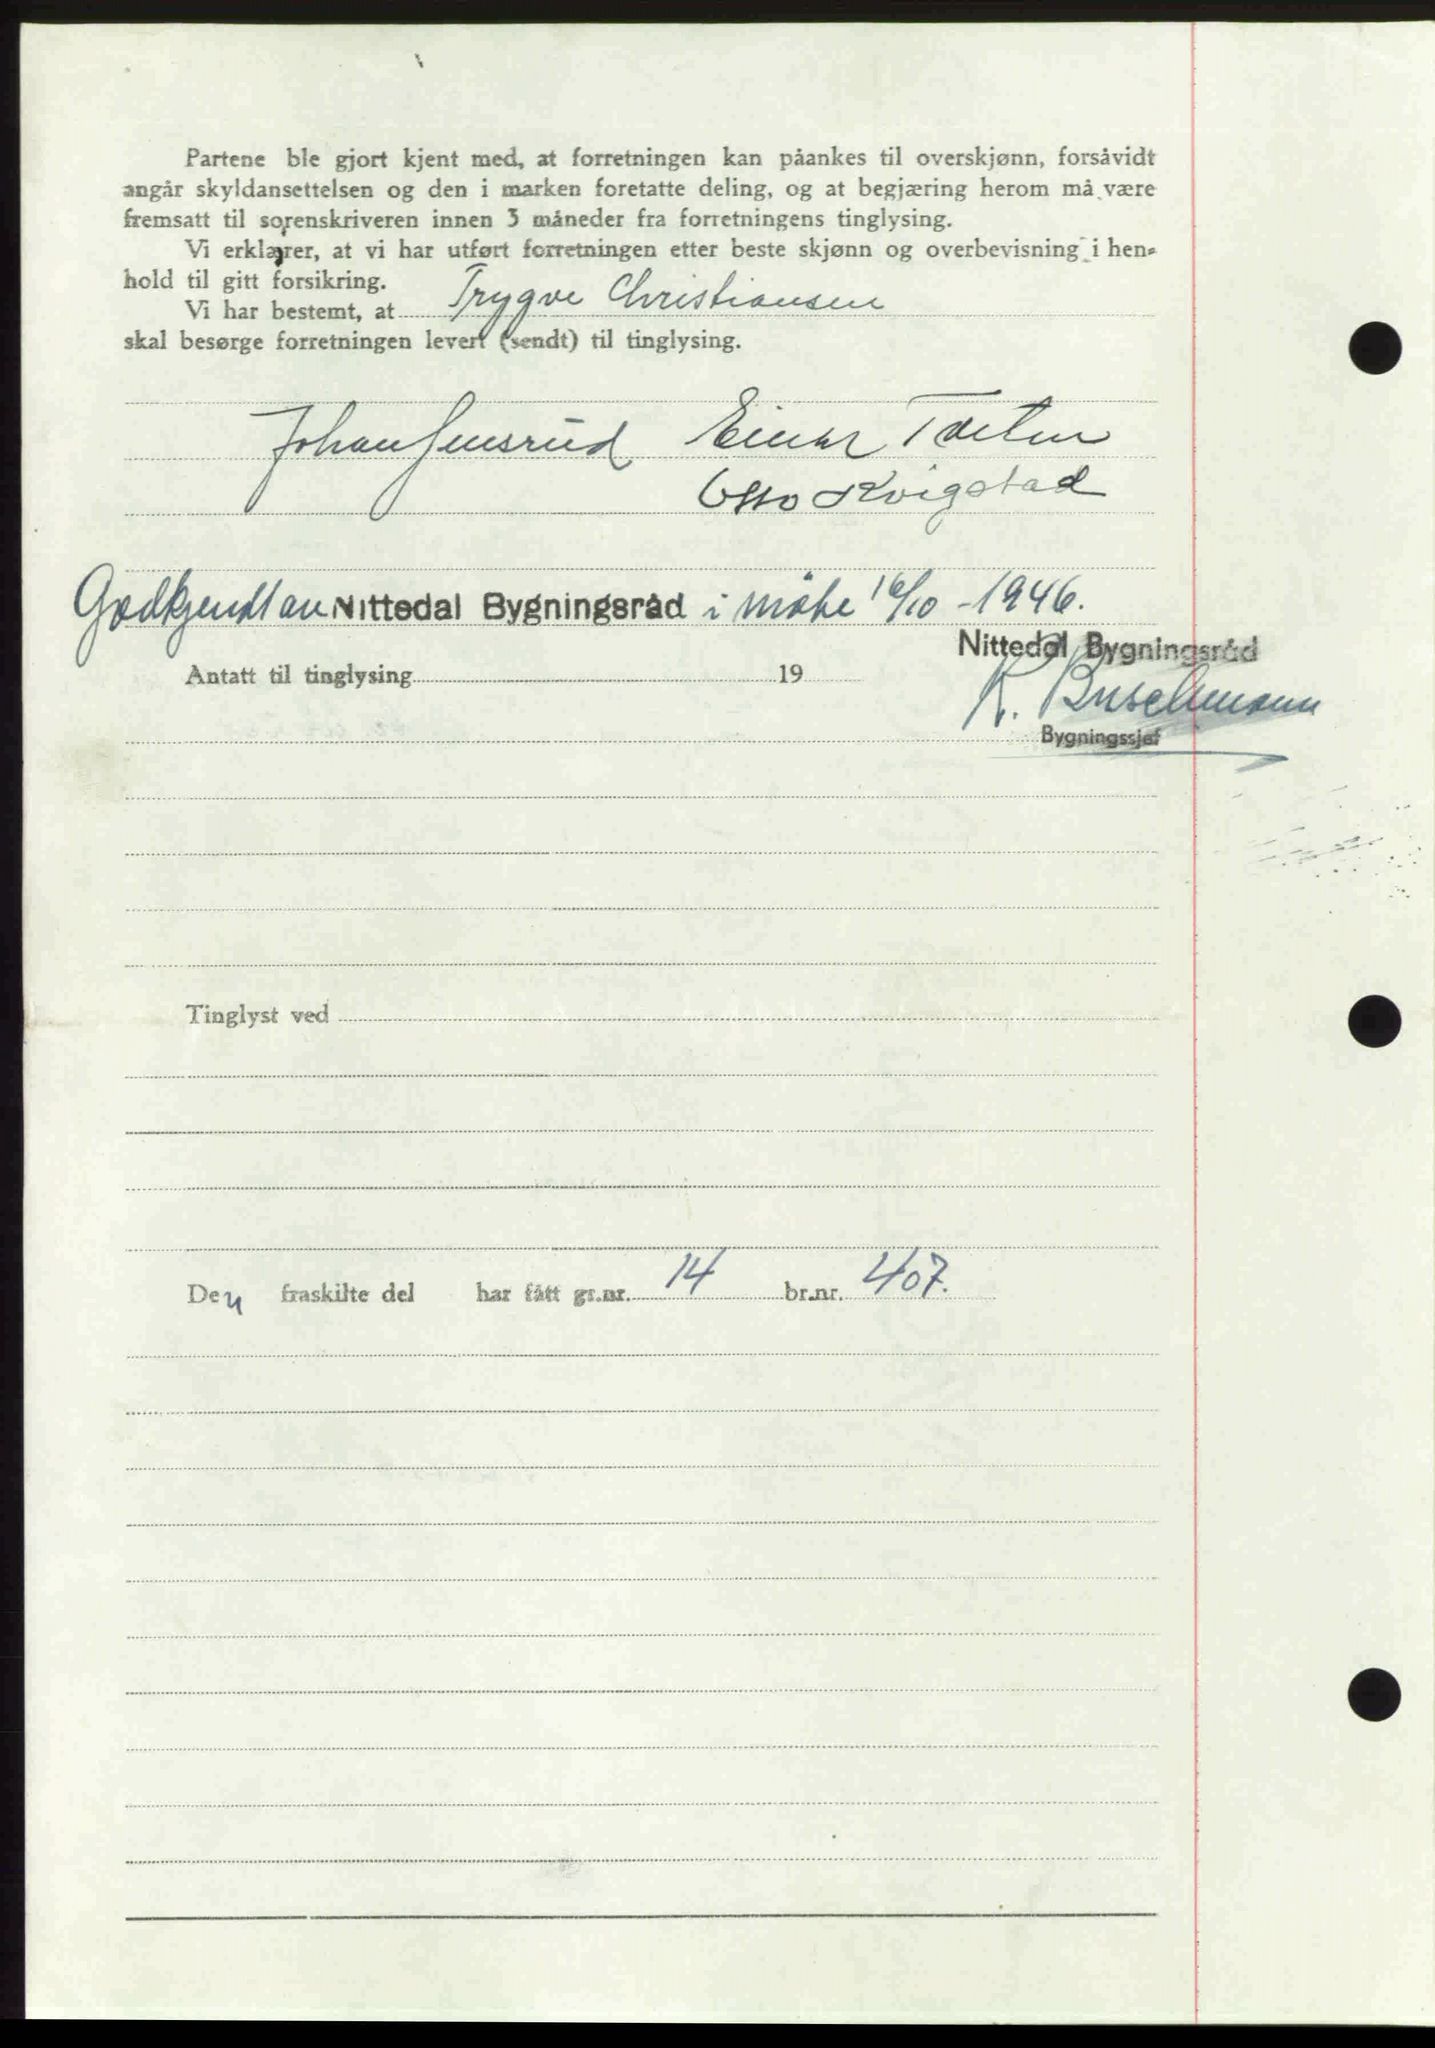 Partene ble gjort kjent med, at forretningen kan påankes til overskjønn, forsåvidt
angår skyldansettelsen og den i marken foretatte deling, og at begjæring herom må være
fremsatt til sorenskriveren innen 3 måneder fra forretningens tinglysing.
Vi erklærer, at vi har utført forretningen etter beste skjønn og overbevisning i hen-
hold til gitt forsikring.
Vi har bestemt, at Trygve Christiansen
skal besørge forretningen levert (sendt) til tinglysing.
Johan Jensrud Einar
Otto Kvigstad
Godkjendt av Nittedal Bygningsråd i møte 16/10 - 1946.
Nittedal Bygningsråd
Antatt til tinglysing 19
K. Buschmann
Bygningssjef
Tinglyst ved
Den fraskilte del har fått gr.nr. 14 br.nr. 407.